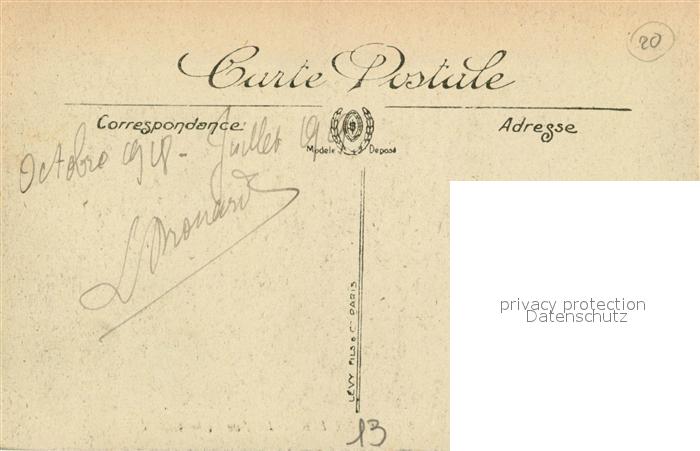 20
Carte Postale
Correspondance
Adresse
Modèle Déposé
Octobre 1918 - Juillet 19
LEVY FILS & Cie PARIS
privacy protection
Datenschutz
13